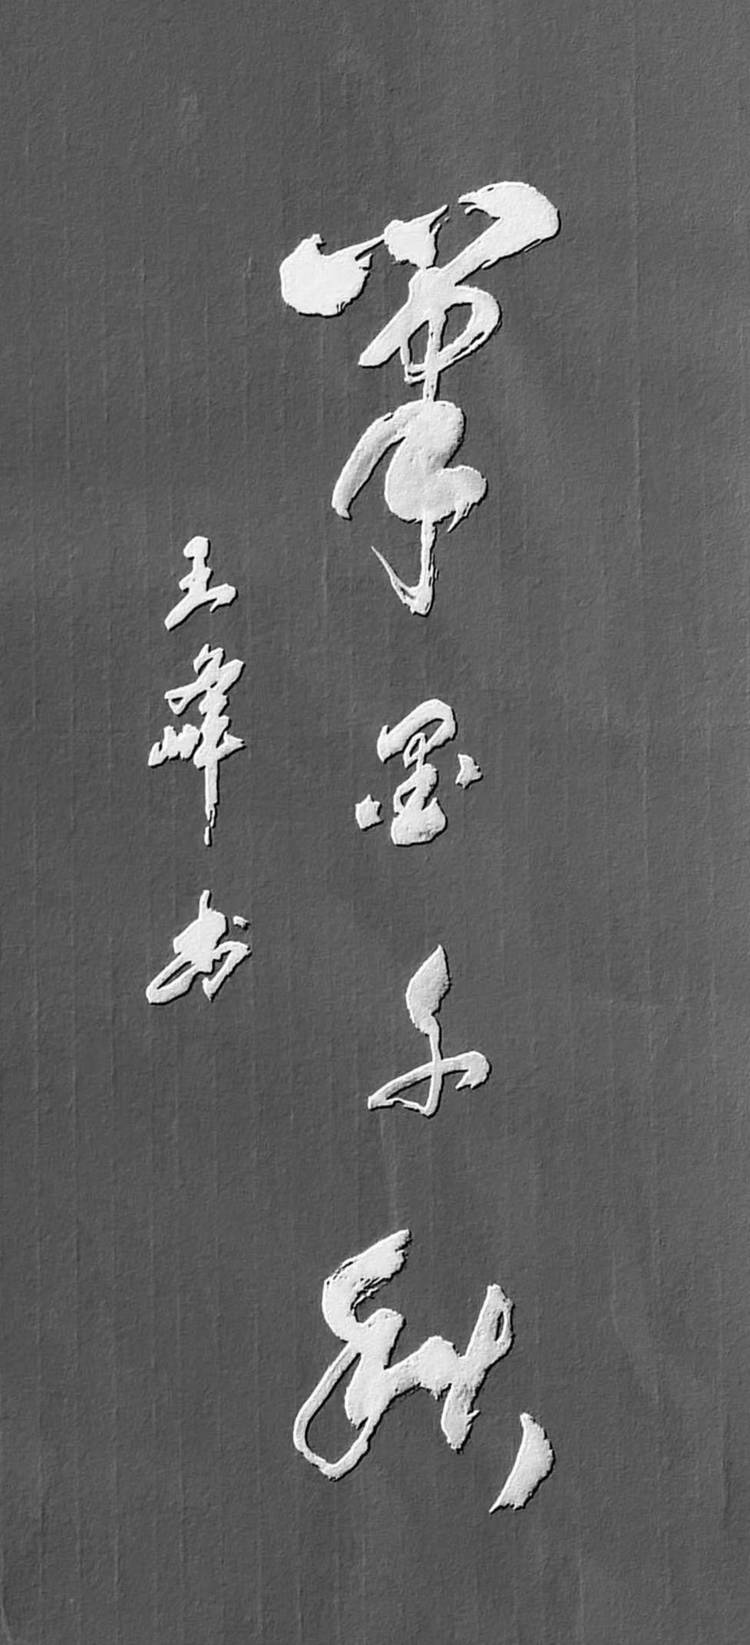 笔墨千秋
王峰书